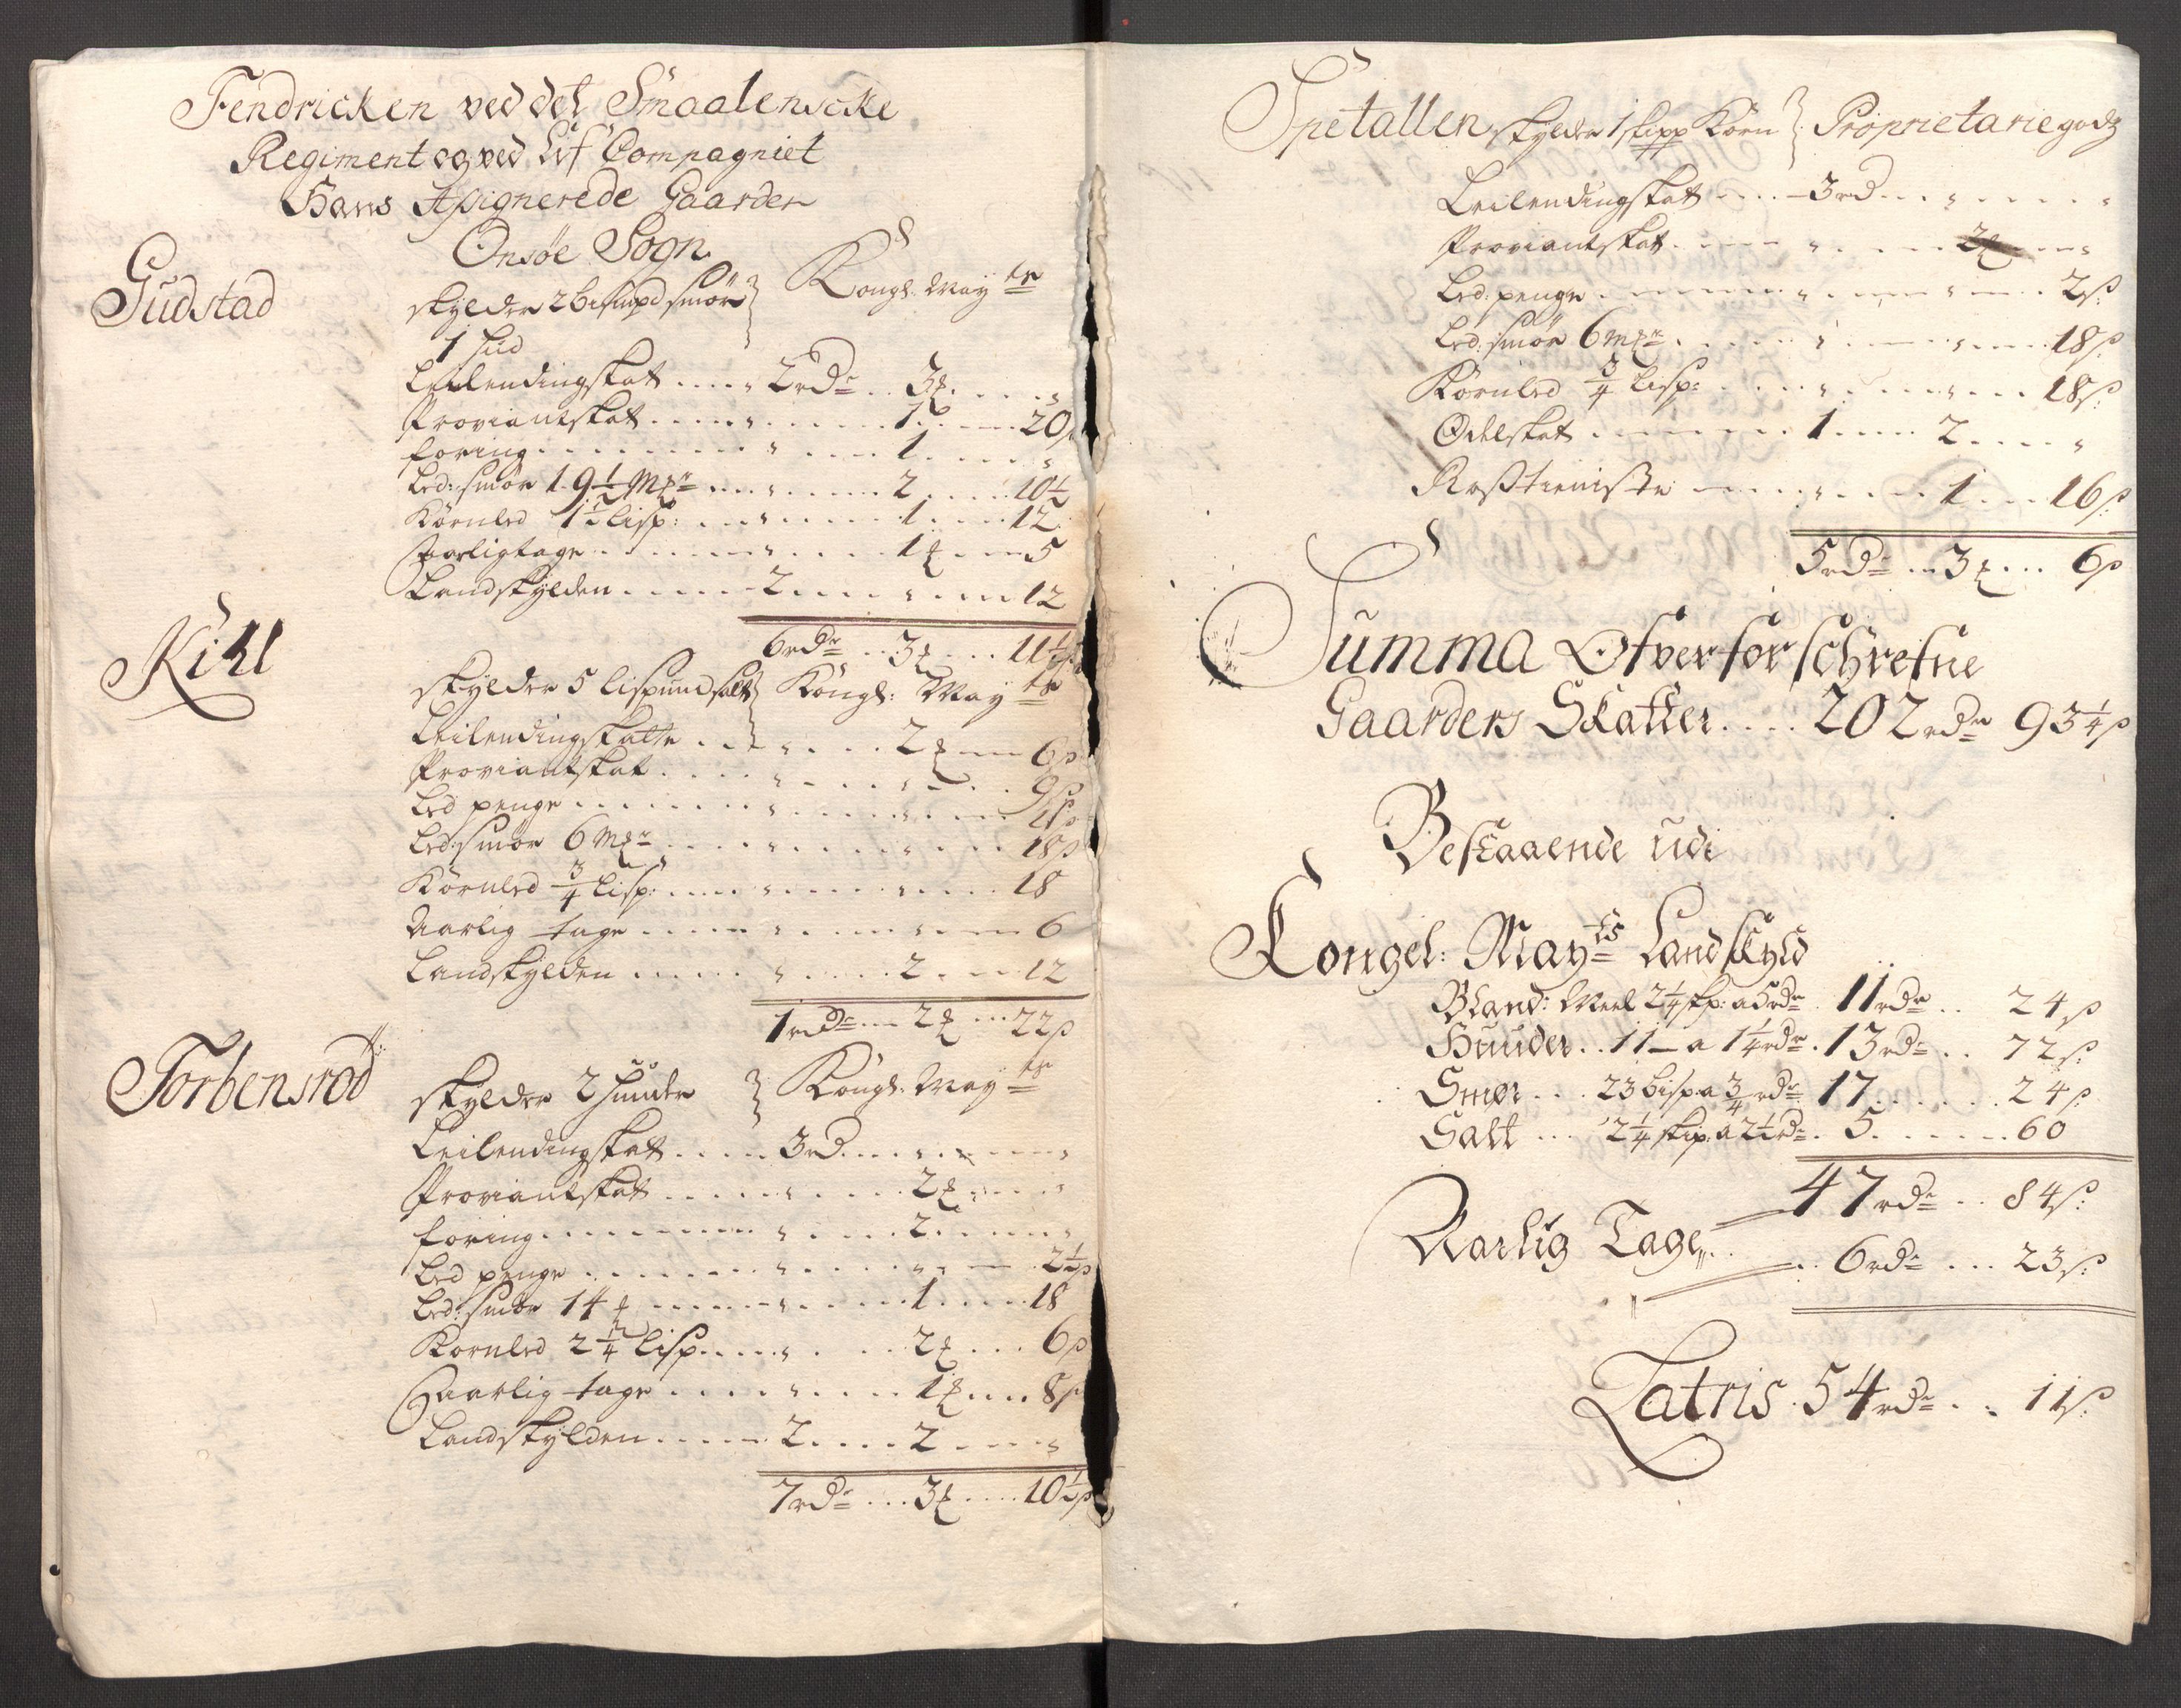 Fendricken ved det Smaalenscke
Regiment og ved Lif Compagniet
Hans Assignerede Gaarder
Onsøe Sogn
Gudstad
skylder 2 bismpd smør } Kongl. May tz
1 hud
Leilendingskat .... 2 rdr .. 3 .... "
Proviantskat .... " .... 1 .... 20 s
foring .... " .... 1 .... "
Led: smør 19½ Mkr .... " .... 2 .... 10½
Kornled 1½ lisp: .... " .... 1 .... 12
Aarligtage .... " .... 1 .... 5
Landskylden .... 2 .... " .... 12
6 rdr .. 3 ... 11½ s
Kihl
skylder 5 lispund salt } Kongl: May tz
Leilendingskatt .... " .... 2 .... 6 s
Proviantskat .... " .... " .... 9 s
Led penge .... " .... " ....
Led: smør 6 Mkr .... " .... " .... 18 s
Kornled ¾ lisp: .... " .... " .... 18
Aarlig tage .... " .... " .... 6
Landskylden .... " .... 2 .... 12
1 rdr ... 2 ... 22 s
Torbensrød
skylder 2 huuder } Kongl. May tz
Leilendingskat .... 3 rd .... " .... "
Proviantskat .... " .... 2 .... "
foring .... " .... 2 .... "
Led penge .... " .... " .... 2½ s
Led: smør 14 .... " .... 1 .... 18
Kornled 2¼ lisp .... " .... 2 ... 6 s
Aarlig tage .... " .... 1 .... 8 s
Landskylden .... 2 .... 2 .... "
7 rdr ... 3 .... 10½ s
Spetallen skylder 1 skipp Korn } Proprietarie godz
Leilendingskat .... 3 rd ... " .... "
Proviantskat .... " .... 2 .... "
Led: penge .... " .... " .... 2 s
Led: smør 6 Mkr .... " .... " .... 18 s
Kornled ¾ lisp: .... " .... " .... 18 s
Odelskat .... 1 .... 2 .... "
Rosstieniste .... " .... 1 .... 16 s
5 rdr ... 3 ... 6 s
Summa Ofverforschrefne
Gaarders Skatter .... 202 rdr 93¼ s
Bestaaende udi
Kongel: May ts Landskyld
Bland: Meel 2¼ skp: a 5 rdr . 11 rdr .. 24 s
Huuder .. 11 – a 1¼ rdr . 13 rdr .. 72 s
Smør ... 23 bisp: a ¾ rdr 17 ...... 24 s
Salt ... 2¼ skip: a 2½ rdr . 5 ...... 60
47 rdr .. 84 s
Aarlig Tage .. 6 rdr ... 23 s
Latris . 54 rdr .. 11 s